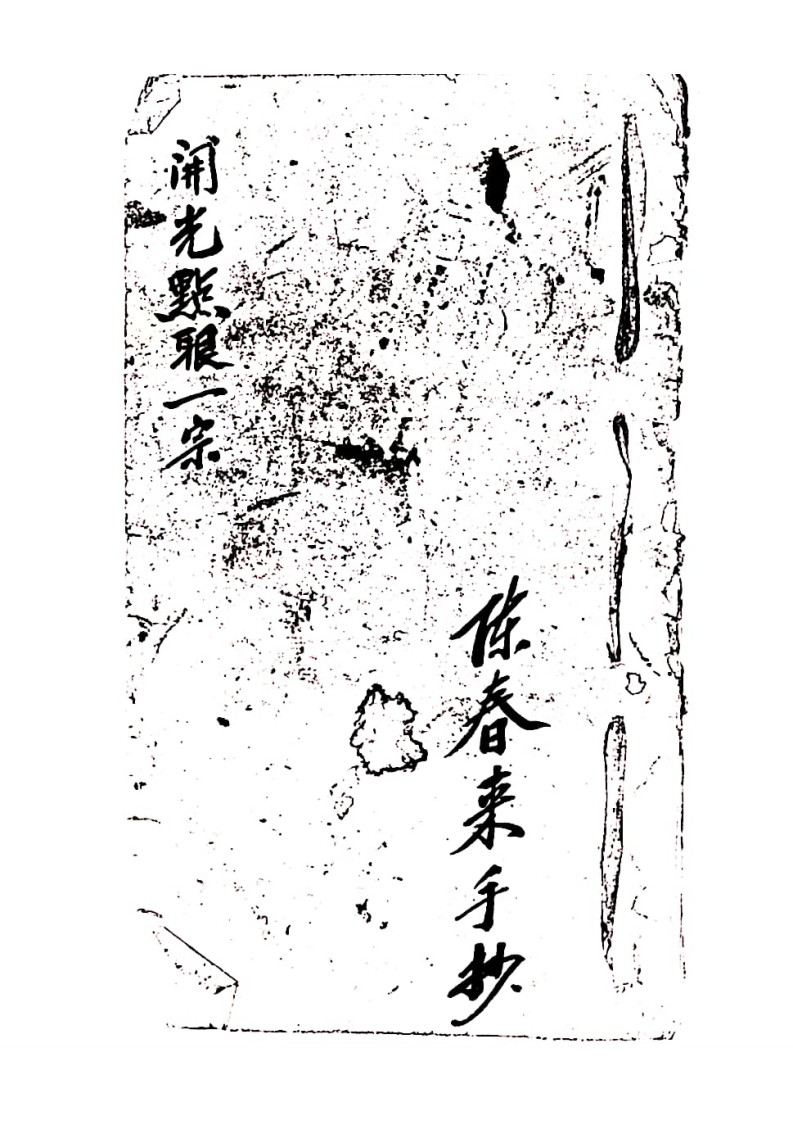 開光點眼一宗
陈春来手抄